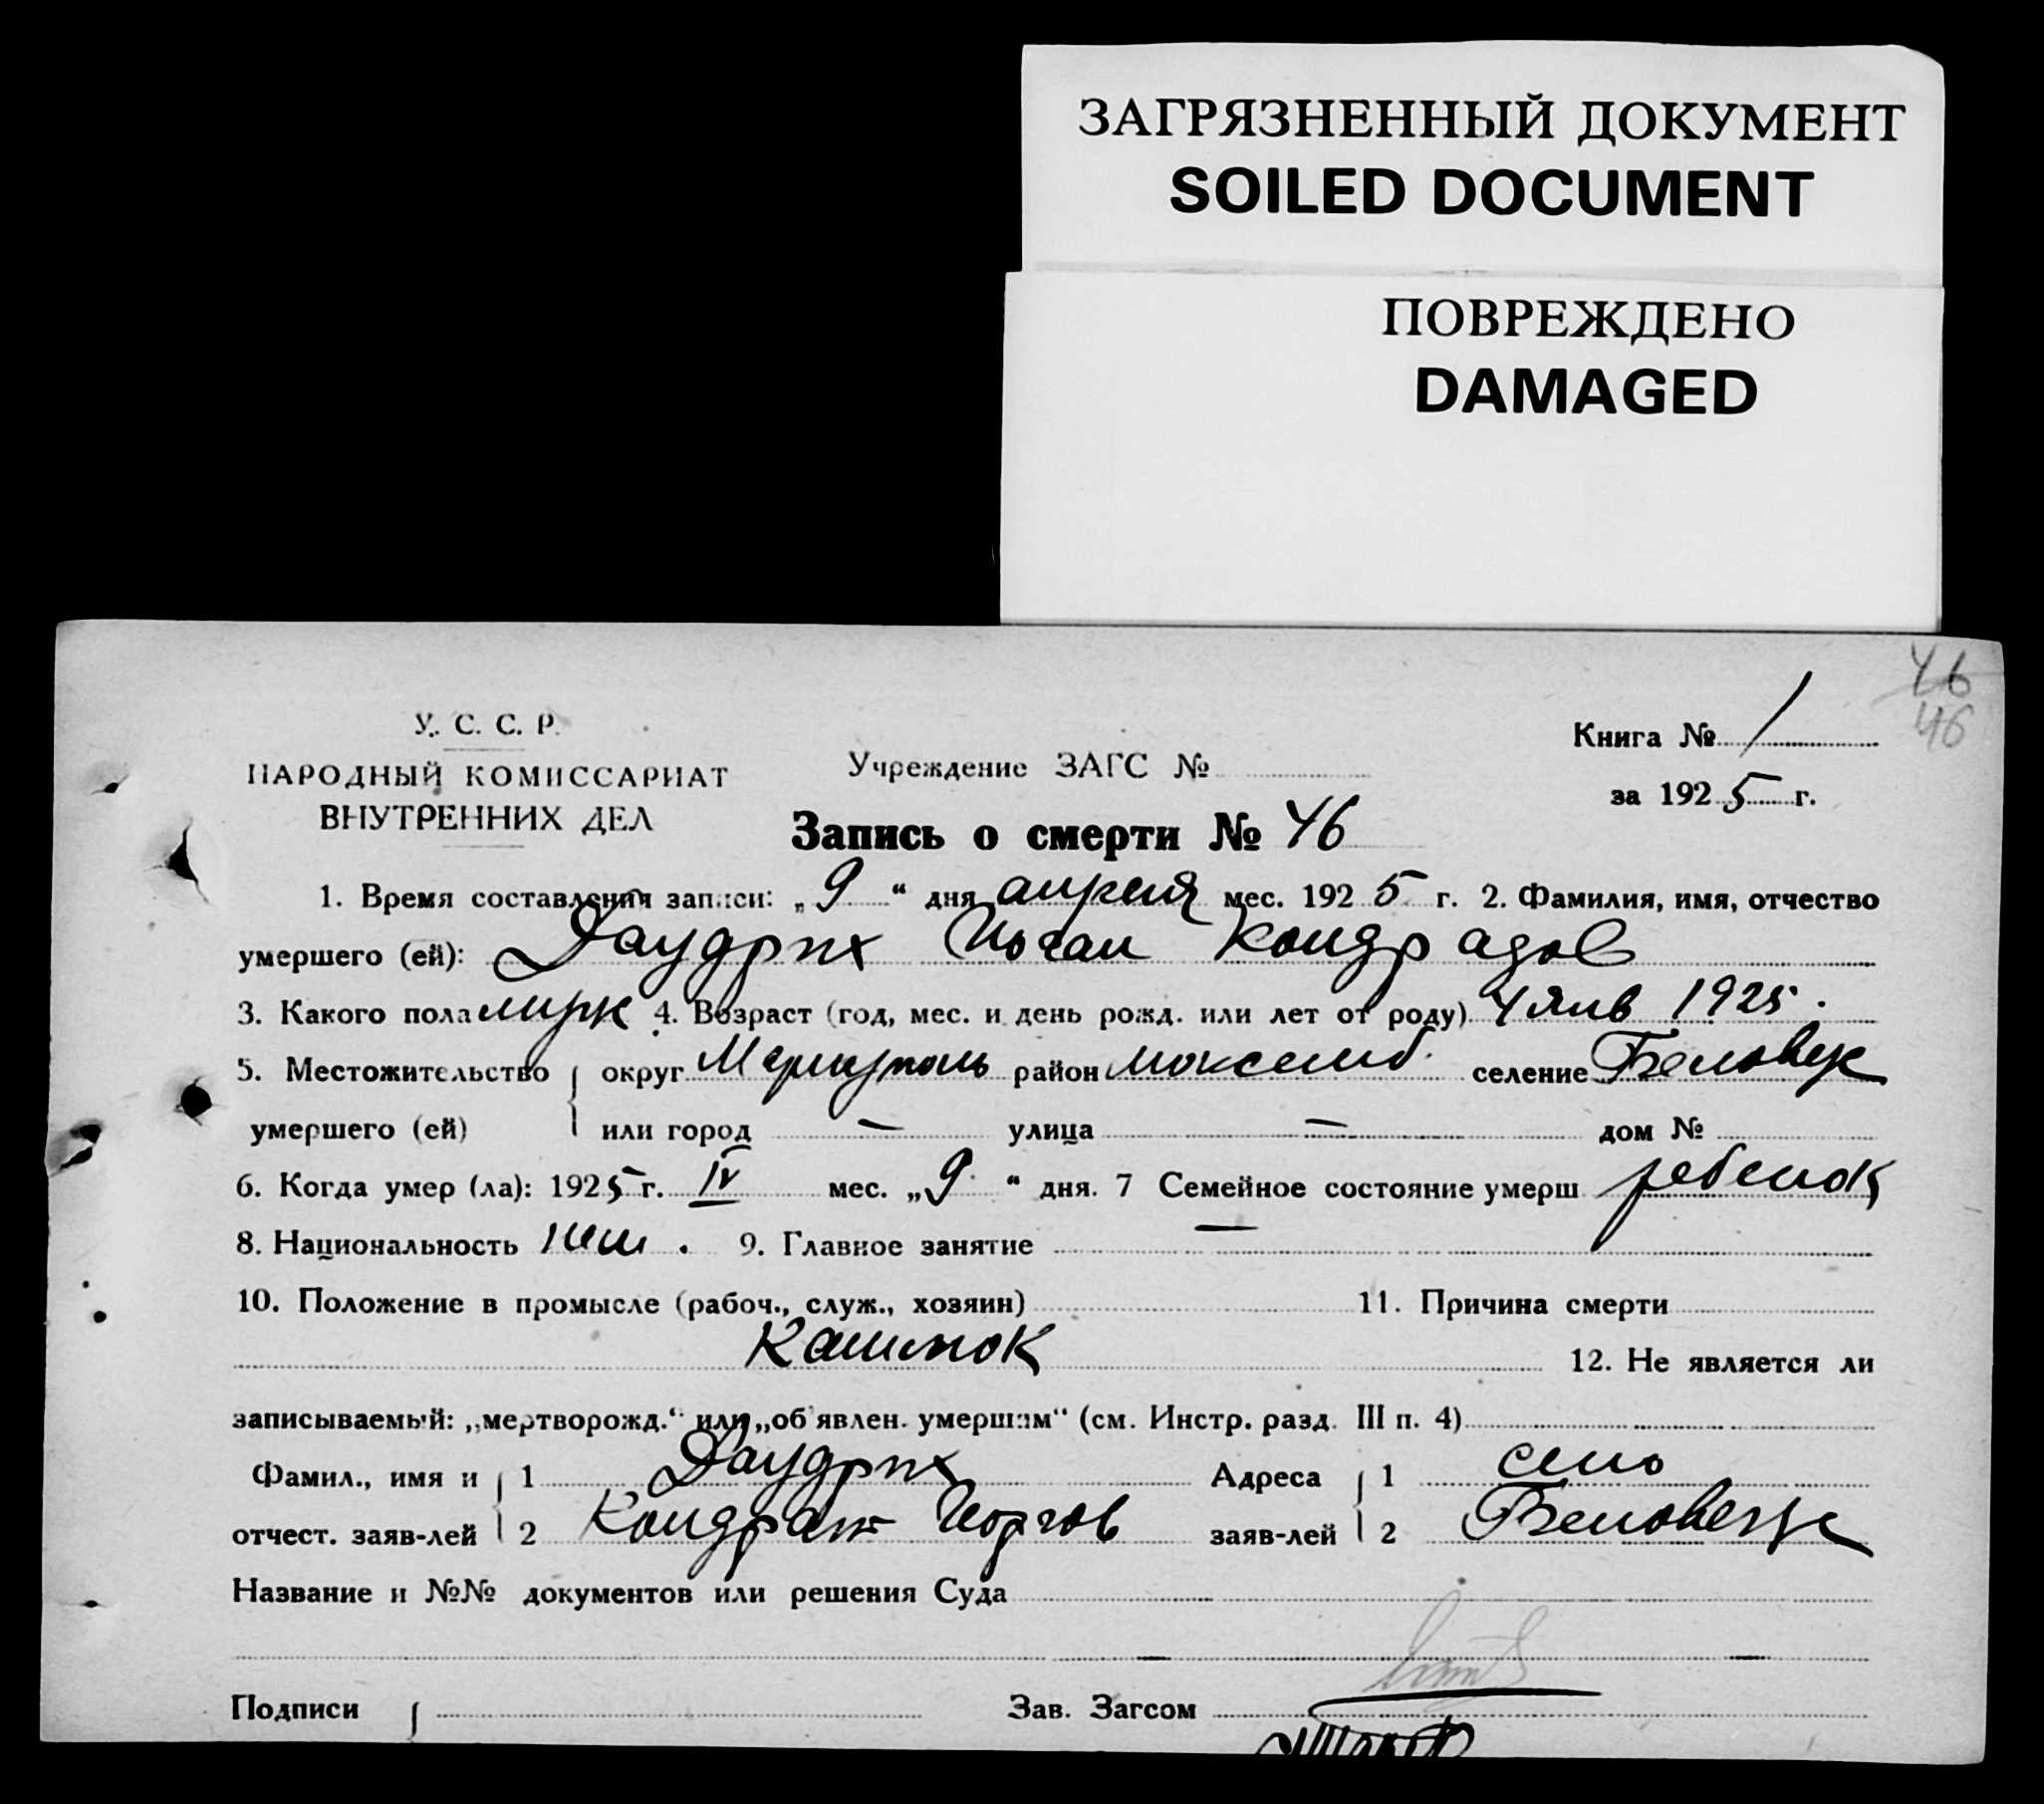 ЗАГРЯЗНЕННЫЙ ДОКУМЕНТ
SOILED DOCUMENT
ПОВРЕЖДЕНО
DAMAGED
46
46
У. С. С. Р.
НАРОДНЫЙ КОМИССАРИАТ
ВНУТРЕННИХ ДЕЛ
Учреждение ЗАГС №
Книга № 1
за 1925 г.
Запись о смерти № 46
1. Время составления записи: „9“ дня апреля мес. 1925 г. 2. Фамилия, имя, отчество
умершего (ей): Даудрих Иоган Кондрадов
3. Какого пола мужк 4. Возраст (год, мес. и день рожд. или лет от роду) 4 янв 1925.
5. Местожительство округ Мариуполь район селение Беловеж
умершего (ей) или город — улица — дом №
6. Когда умер (ла): 1925 г. IV мес. „9“ дня. 7 Семейное состояние умерш ребенок
8. Национальность нем. 9. Главное занятие —
10. Положение в промысле (рабоч., служ., хозяин) 11. Причина смерти
Кашлюк 12. Не является ли
записываемый: „мертворожд.“ или „об'явлен. умершим“ (см. Инстр. разд. III п. 4)
Фамил., имя и 1 Даудрих Адреса 1 село
отчест. заяв-лей 2 Кондрат Георгов заяв-лей 2 Беловежс
Название и №№ документов или решения Суда
Подписи Зав. Загсом